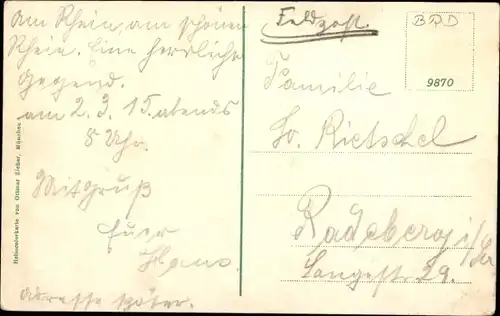 Am Rhein, am schönen
Rhein. Eine herrliche
Gegend.
am 2.3.15. abends
8 Uhr.
Mit Gruß
Euer
Hans.
Adresse später.
Heliocolorkarte von Ottmar Zieher, München
Feldpost.
BRD
9870
Familie
Lo. Rietschel
Radeberg i/Sa
Langestr. 29.